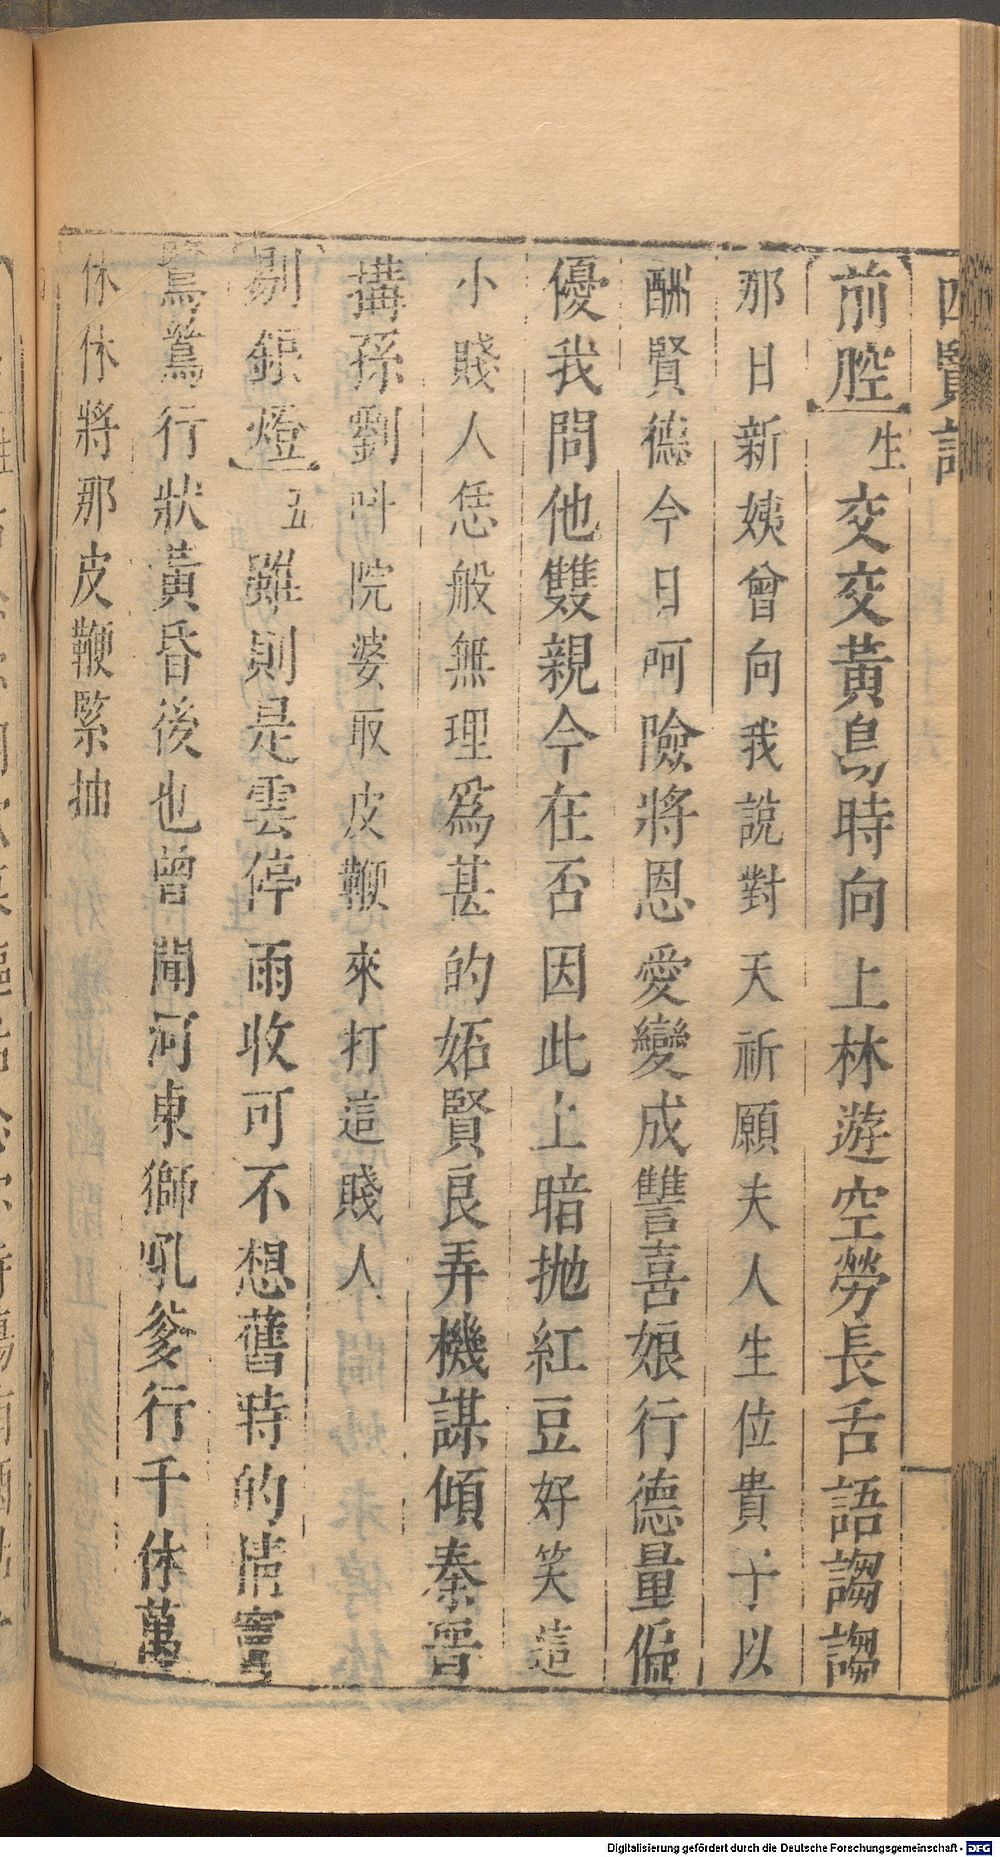 四賢記
【前腔】生交交黃鳥時向上林遊空勞長舌語謅謅
那日新姨曾向我說對天祈願夫人生位貴子以
酬賢德今日呵險將恩愛變成讐喜娘行德量偏
優我問他雙親今在否因此上暗拋紅豆好笑這
小賤人恁般無理爲甚的妬賢良弄機謀傾秦晉
搆孫劉叫院婆取皮鞭來打這賤人
【剔銀燈】五雖則是雲停雨收可不想舊時的情竇
鴛鴦行狀黃昏後也曾聞河東獅吼爹行千休萬
休休將那皮鞭緊抽
Digitalisierung gefördert durch die Deutsche Forschungsgemeinschaft - DFG